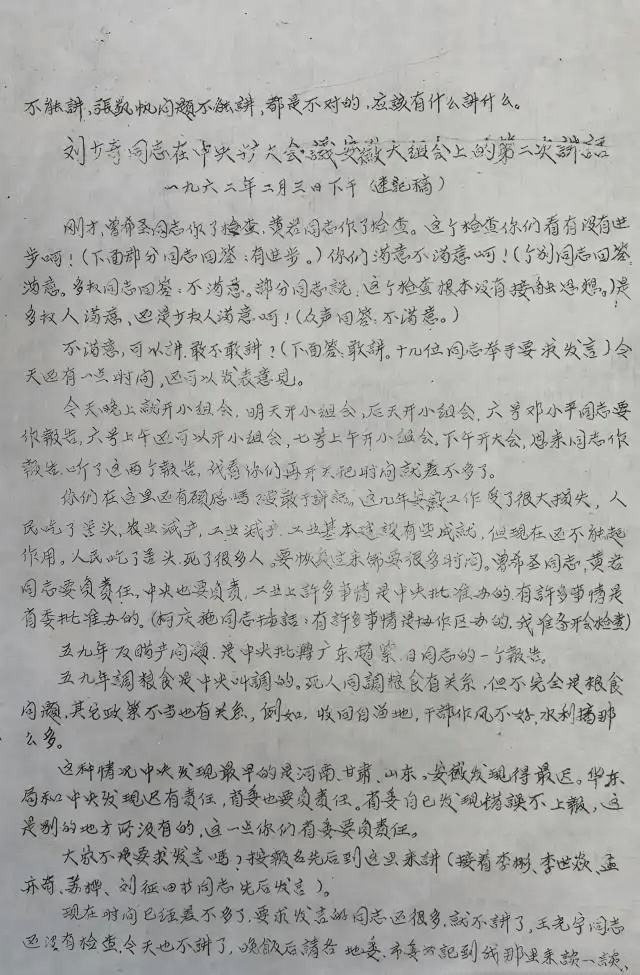 不能讲,張凱帆问题不能讲,都是不对的,应該有什么讲什么。
刘少奇同志在中央扩大会議安徽大组会上的第二次讲話
一九六二年二月三日下午(速記稿)
刚才,曾希圣同志作了检查,黄岩同志作了检查。这个检查你们看有没有进
步呵!(下面部分同志回答:有进步。)你们满意不满意呵!(个别同志回答:
满意。多数同志回答:不满意。部分同志説:这个检查根本没有接触思想。)是
多数人满意、还是少数人满意呵!(众声回答:不满意。)
不满意,可以讲.敢不敢讲?(下面答:敢讲。十几位同志举手要求发言)今
天还有一点时间,还可以发表意见。
今天晚上就开小组会,明天开小组会,后天开小组会,六号邓小平同志要
作報告,六号上午还可以开小组会,七号上午开小组会,下午开大会,恩来同志作
報告.听了这两个報告,我看你们再开天把时间就差不多了。
你们在这里还有顾慮吗?要敢于讲話。这几年安徽工作受了很大损失,人
民吃了苦头,农业减产,工业减产.工业基本建設有些成就,但现在还不能起
作用。人民吃了苦头.死了很多人。要恢复过来需要很多时间。曾希圣同志,黄岩
同志要负責任,中央也要负責,工业上許多事情是中央批准办的.有許多事情是
省委批准办的.(柯庆施同志插話:有許多事情是协作区办的,我准备开会检查)
五九年反瞒产问题.是中央批轉广东趙紫日同志的一个報告。
五九年調粮食是中央叫調的。死人同調粮食有关系,但不完全是粮食
问题,其它政策不当也有关系,例如,收回自留地,干部作风不好,水利搞那
么多。
这种情况中央发现最早的是河南.甘肃.山东。安徽发现得最迟。华东
局和中央发现迟有責任,省委也要负責任。省委自已发现错誤不上報,这
是别的地方所没有的,这一点你们省委要负責任。
大家不是要求发言吗?按報名先后到这里来讲(接着李彬、李世焱、孟
亦奇、苏樺、刘征田等同志先后发言)。
现在时间已经差不多了,要求发言的同志还很多,就不讲了,王光宇同志
还没有检查.今天也不讲了,晚飯后請各地委.市委书記到我那里来談一談、